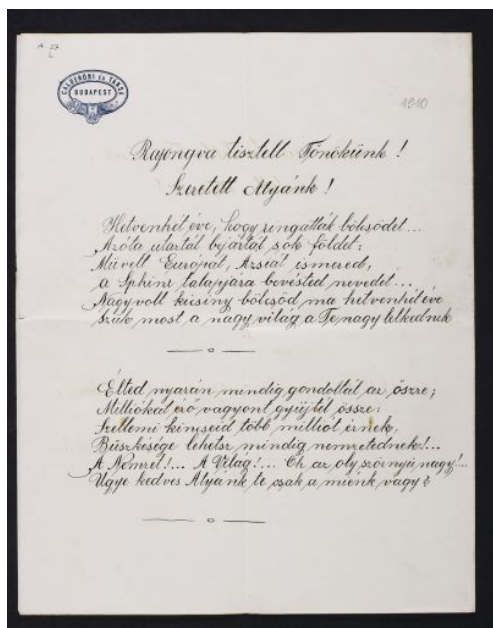 CALDERONI ÉS TÁRSA
BUDAPEST
1910
Rajongva tisztelt Főnökünk!
Szeretett Atyánk!
Hetvenhét éve, hogy ringatták bölcsődet...
Azóta utartál bejártál sok földet;
Művelt Európát, Azsiát ismered,
a Sphinx talapjára bevésted nevedet...
Nagy volt kicsiny bölcsőd ma hetvenhét éve
Szűk most a nagy világ a Te nagy lelkednek
Élted nyarán mindig gondoltál az őszre;
Milliókat érő vagyont gyűjtél össze:
Szellemi kincseid több milliót érnek,
Büszkesége lehetsz mindig nemzetednek!...
A Nemzet!... A Világ!... Oh az oly szörnyű nagy!...
Ugye kedves Atyánk te csak a miénk vagy?